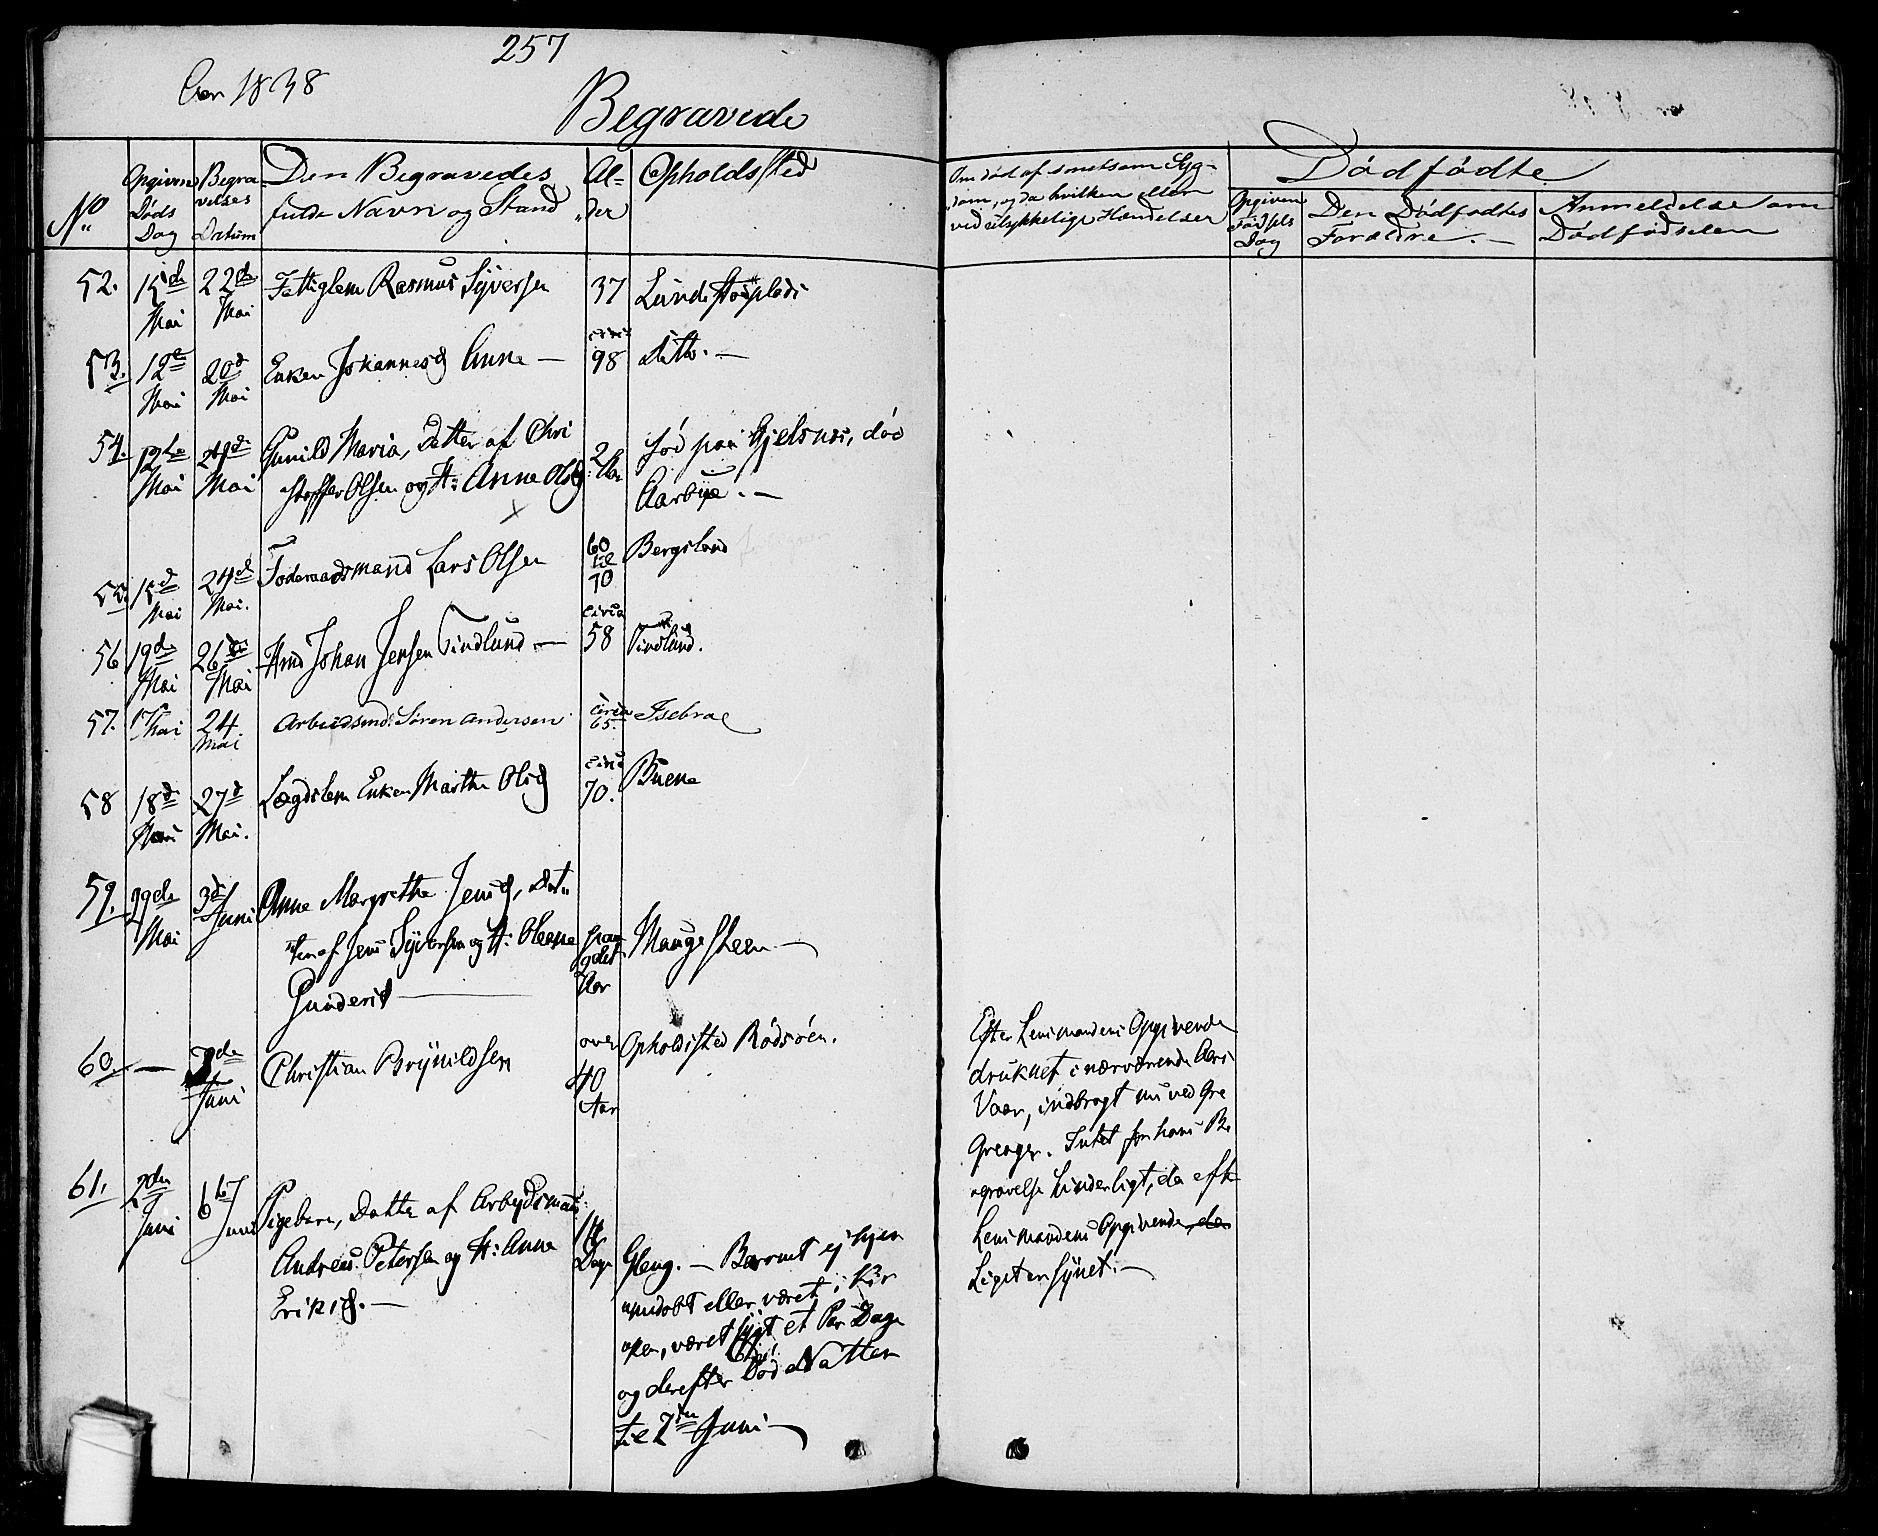 257
Aar 1838
Begravede
No
Opgiven Døds Dag
Begravelses Datum
Den Begravedes fulde Navn og Stand
Alder
Opholdssted
Om død af smitsom Syg-
dom, og da hvilken eller
ved ulykkelige Hændelser
Dødfødte
Opgiven Fødsels Dag
Den Dødfødtes Forældre.
Anmeldelse om Dødfødselen
52. 15de Mai 22de Mai Fattiglem Rasmus Syversen 37 Lundestadpleds
53. 12te Mai 20d Mai Enken Johannesd Anne — circa 98 Ditto. —
54. 12te Mai 21d Mai Gunild Maria, Datter af Chri
stoffer Olsen og H: Anne Olsd 2 Aar fød paa Gjelsnes, død
Aarbye. —
55. 15d Mai 24d Mai. Føderaadsmand Lars Olsen 60 til 70 Bergsland
56 19de Mai 26de Mai Hmd Johan Jensen Tindlund — circa 58 Tindlund.
57. Mai 24. Mai Arbeidsmd: Søren Andersen circa 65. Isebroe
58 18de Mai 27d Mai. Lægdslem Enken Marthe Olsd circa 70. Buene
59. 29de Mai 3d Juni Anne Margrethe Jensd, Dat
ter af Jens Syversen og H: Oleane
Gundersd — Aar Haugesteen —
60. — 3de Juni Christian Brynildsen over 40 Aar Opholdssted Rødsøen.
Efter Lensmandens Opgivende
druknet i nærværende Aars
Vaar, indbragt nu ved Gre
Greager. Intet for hans Be
gravelse hinderligt, da eft.
Lensmandens Opgivende,
Liget er synet. —
61. 2den Juni 6te Juni Pigebarn, Datter af Arbeidsmand
Andreas Petersen og H: Anne
Eriksd. — 14 Dage Gleng. — Barnet ej hjem
medøbt eller været i Kir
ken, været sygt et Par Dage
og derefter død Natten
til 2den Juni —